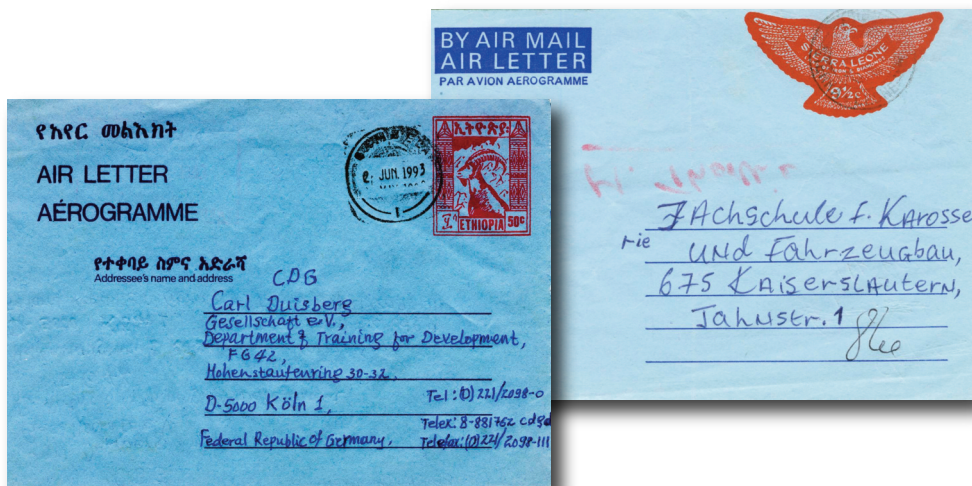 የአየር መልእክት
AIR LETTER
AÉROGRAMME
JUN. 1993
1
ኢትዮጵያ
ETHIOPIA 50c
የተቀባይ ስምና አድራሻ
Addressee's name and address
CDG
Carl Duisberg
Gesellschaft e.V.,
Department of Training for Development,
FG42,
Hohenstaufenring 30-32,
D-5000 Köln 1,
Federal Republic of Germany.
Tel: (0)221/2098-0
Telex: 8-881762 cdgd
Telefax: (0)221/2098-111
BY AIR MAIL
AIR LETTER
PAR AVION AEROGRAMME
SIERRA LEONE
9½c
FAchschule f. KArosse
rie
UNd FAhrzeugbau,
675 KAiserslAutern,
JahNstr. 1